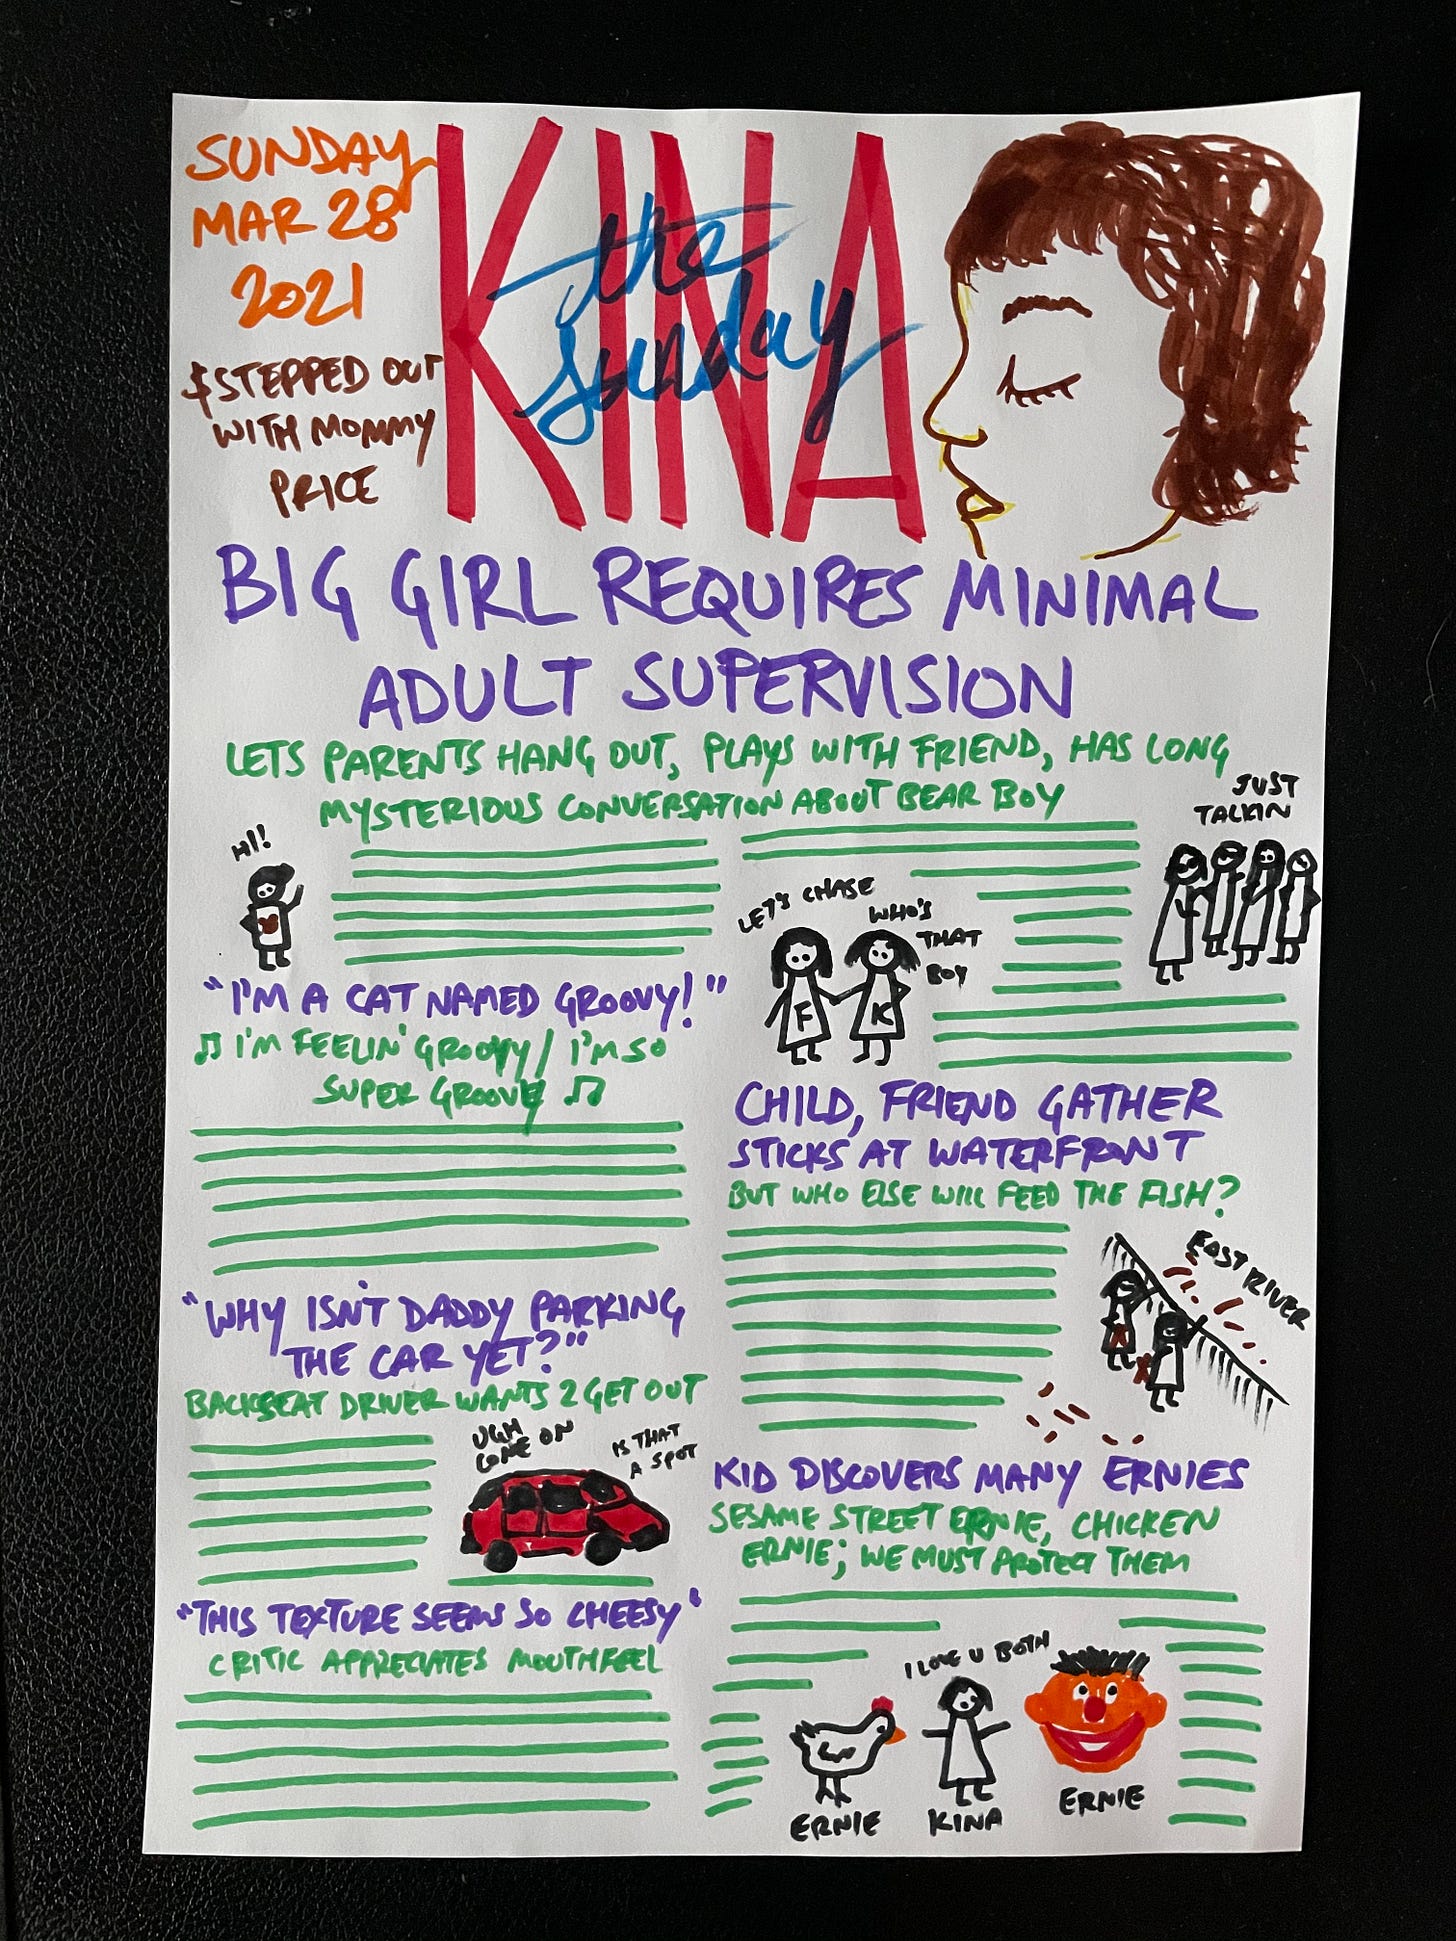 SUNDAY
MAR 28
2021
$STEPPED OUT
WITH MOMMY
PRICE
KINA
the
sunday
BIG GIRL REQUIRES MINIMAL
ADULT SUPERVISION
LETS PARENTS HANG OUT, PLAYS WITH FRIEND, HAS LONG
MYSTERIOUS CONVERSATION ABOUT BEAR BOY
HI!
LET'S CHASE
WHO'S
THAT
BOY
F
K
JUST
TALKIN
"I'M A CAT NAMED GROOVY!"
♫ I'M FEELIN' GROOVY / I'M SO
SUPER GROOVY ♫
"WHY ISN'T DADDY PARKING
THE CAR YET?"
BACKSEAT DRIVER WANTS 2 GET OUT
UGH
COME ON
IS THAT
A SPOT
"THIS TEXTURE SEEMS SO CHEESY"
CRITIC APPRECIATES MOUTHFEEL
CHILD, FRIEND GATHER
STICKS AT WATERFRONT
BUT WHO ELSE WILL FEED THE FISH?
EAST RIVER
KID DISCOVERS MANY ERNIES
SESAME STREET ERNIE, CHICKEN
ERNIE; WE MUST PROTECT THEM
I LOVE U BOTH
ERNIE
KINA
ERNIE